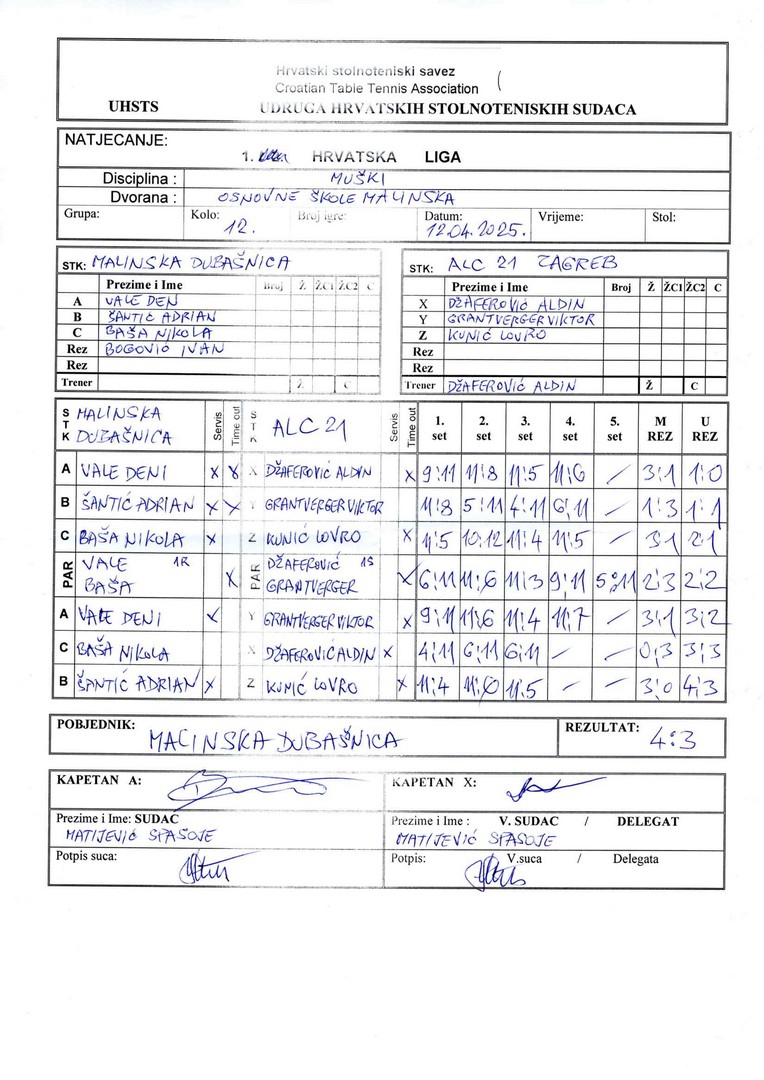 Hrvatski stolnoteniski savez
Croatian Table Tennis Association
UHSTS UDRUGA HRVATSKIH STOLNOTENISKIH SUDACA
NATJECANJE:
1. HRVATSKA LIGA
Disciplina : MUŠKI
Dvorana : OSNOVNE ŠKOLE MALINSKA
Grupa: Kolo: 12. Broj igre: Datum: 12.04.2025. Vrijeme: Stol:
STK: MALINSKA DUBAŠNICA
Prezime i Ime Broj Ž ŽC1 ŽC2 C
A VALE DEN
B ŠANTIĆ ADRIAN
C BAŠA NIKOLA
Rez BOGOVIĆ IVAN
Rez
Trener Ž C
STK: ALC 21 ZAGREB
Prezime i Ime Broj Ž ŽC1 ŽC2 C
X DŽAFEROVIĆ ALDIN
Y GRANTVERGER VIKTOR
Z KUNIĆ LOVRO
Rez
Rez
Trener DŽAFEROVIĆ ALDIN Ž C
STK MALINSKA DUBAŠNICA Servis Time out STK ALC 21 Servis Time out 1. set 2. set 3. set 4. set 5. set M REZ U REZ
A VALE DENI X X X DŽAFEROVIĆ ALDIN X 9:11 11:8 11:5 11:6 / 3:1 1:0
B ŠANTIĆ ADRIAN X X Y GRANTVERGER VIKTOR 11:8 5:11 4:11 6:11 / 1:3 1:1
C BAŠA NIKOLA X Z KUNIĆ LOVRO X 11:5 10:12 11:4 11:5 / 3:1 2:1
PAR VALE 1R BAŠA X PAR DŽAFEROVIĆ 1S GRANTVERGER X 6:11 11:6 11:3 9:11 5:11 2:3 2:2
A VALE DENI X Y GRANTVERGER VIKTOR X 9:11 11:6 11:4 11:7 / 3:1 3:2
C BAŠA NIKOLA X DŽAFEROVIĆ ALDIN X 4:11 6:11 6:11 / / 0:3 3:3
B ŠANTIĆ ADRIAN X Z KUNIĆ LOVRO X 11:4 11:6 11:5 / / 3:0 4:3
POBJEDNIK: MALINSKA DUBAŠNICA REZULTAT: 4:3
KAPETAN A: KAPETAN X:
Prezime i Ime: SUDAC Prezime i Ime : V. SUDAC / DELEGAT
MATIJEVIĆ SPASOJE MATIJEVIĆ SPASOJE
Potpis suca: Potpis: V.suca / Delegata